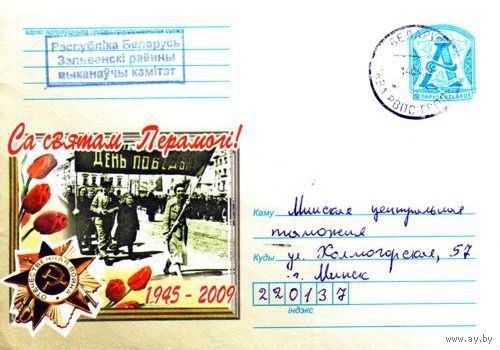 Рэспубліка Беларусь
Зэльвенскі раённы
выканаўчы камітэт
БЕЛАРУСЬ
A
БЕЛАРУСЬ BELARUS
Са святам Перамогі!
ДЕНЬ ПОБЕДЫ
ОТЕЧЕСТВЕННАЯ ВОЙНА
1945 - 2009
Каму Минская центральная
таможня
Куды ул. Холмогорская, 57
г. Минск
220137
індэкс
www.ay.by